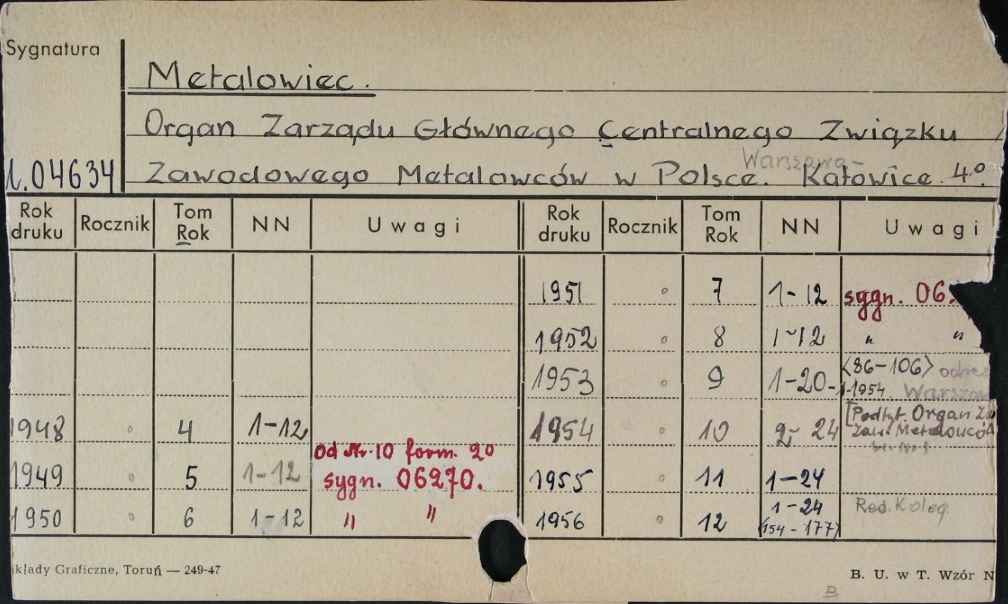 Sygnatura
Metalowiec.
Organ Zarządu Głównego Centralnego Związku
Warszawa-
1.04634 Zawodowego Metalowców w Polsce. Katowice. 4º.
Rok druku Rocznik Tom Rok NN Uwagi Rok druku Rocznik Tom Rok NN Uwagi
1951 7 1-12 sygn. 06
1952 8 1-12 " "
1953 9 1-20- <86-106>
1-1954 Warsza
1948 4 1-12 1954 10 2-24 [Podtyt. Organ
Od Nr. 10 form. 20
1949 5 1-12 sygn. 06270. 1955 11 1-24
1950 6 1-12 " " 1956 12 1-24 Red. Koleg.
(154-177)
kłady Graficzne, Toruń — 249-47
B. U. w T. Wzór N
B